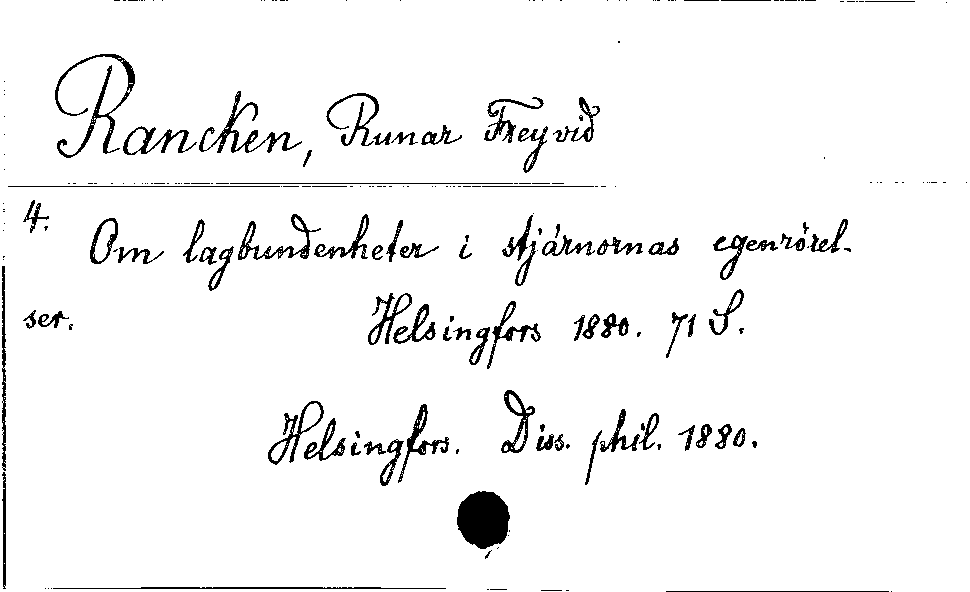 Rancken, Runar Freyvid
4.
Om lagbundenheter i stjärnornas egenrörel-
ser. Helsingfors 1880. 71 S.
Helsingfors. Diss. phil. 1880.